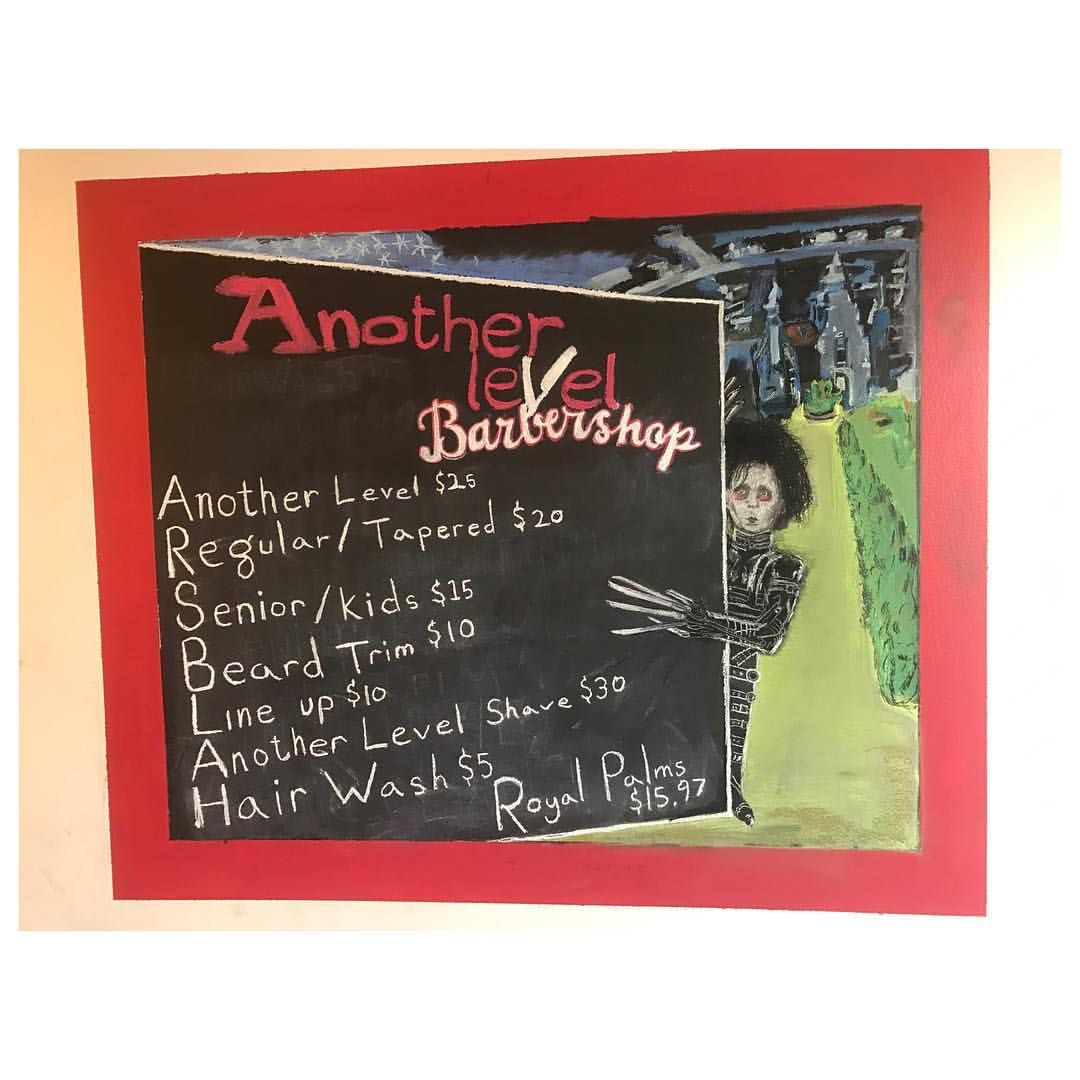 Another
leVel
Barbershop
Another Level $25
Regular/Tapered $20
Senior/kids $15
Beard Trim $10
Line up $10
Another Level Shave $30
Hair Wash $5
Royal Palms
$15.97